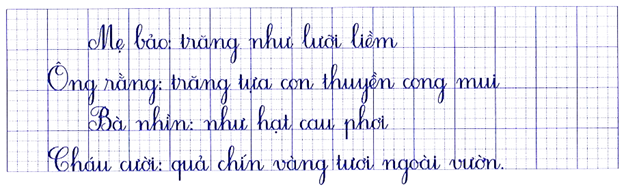 Mẹ bảo: trăng như lưỡi liềm
Ông rằng: trăng tựa con thuyền cong mui
Bà nhìn: như hạt cau phơi
Cháu cười: quả chín vàng tươi ngoài vườn.